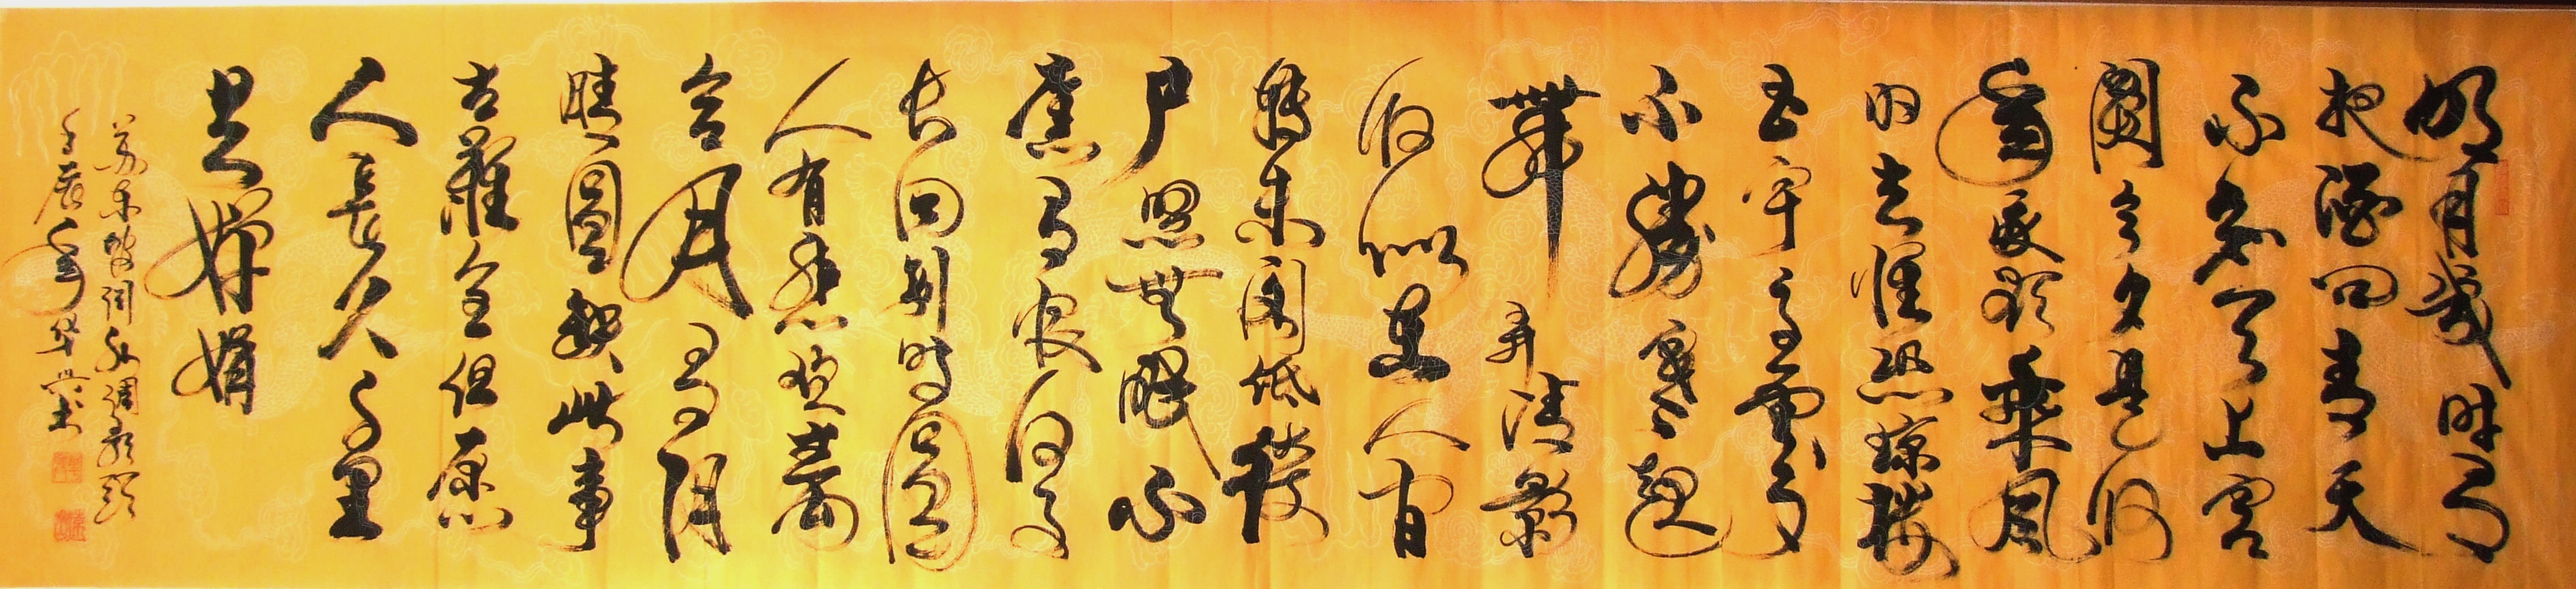 明月幾時有
把酒问青天
不知天上宫
闕今夕是何
年我欲乘風
归去惟恐瓊樓
玉宇高處
不勝寒起
舞弄清影
何似在人间
转朱阁低绮
户照無眠不
應有恨何事
长向别時圓
人有悲歡離
合月有阴
晴圓缺此事
古難全但愿
人長久千里
共嬋娟
苏东坡词水調歌頭
壬辰年